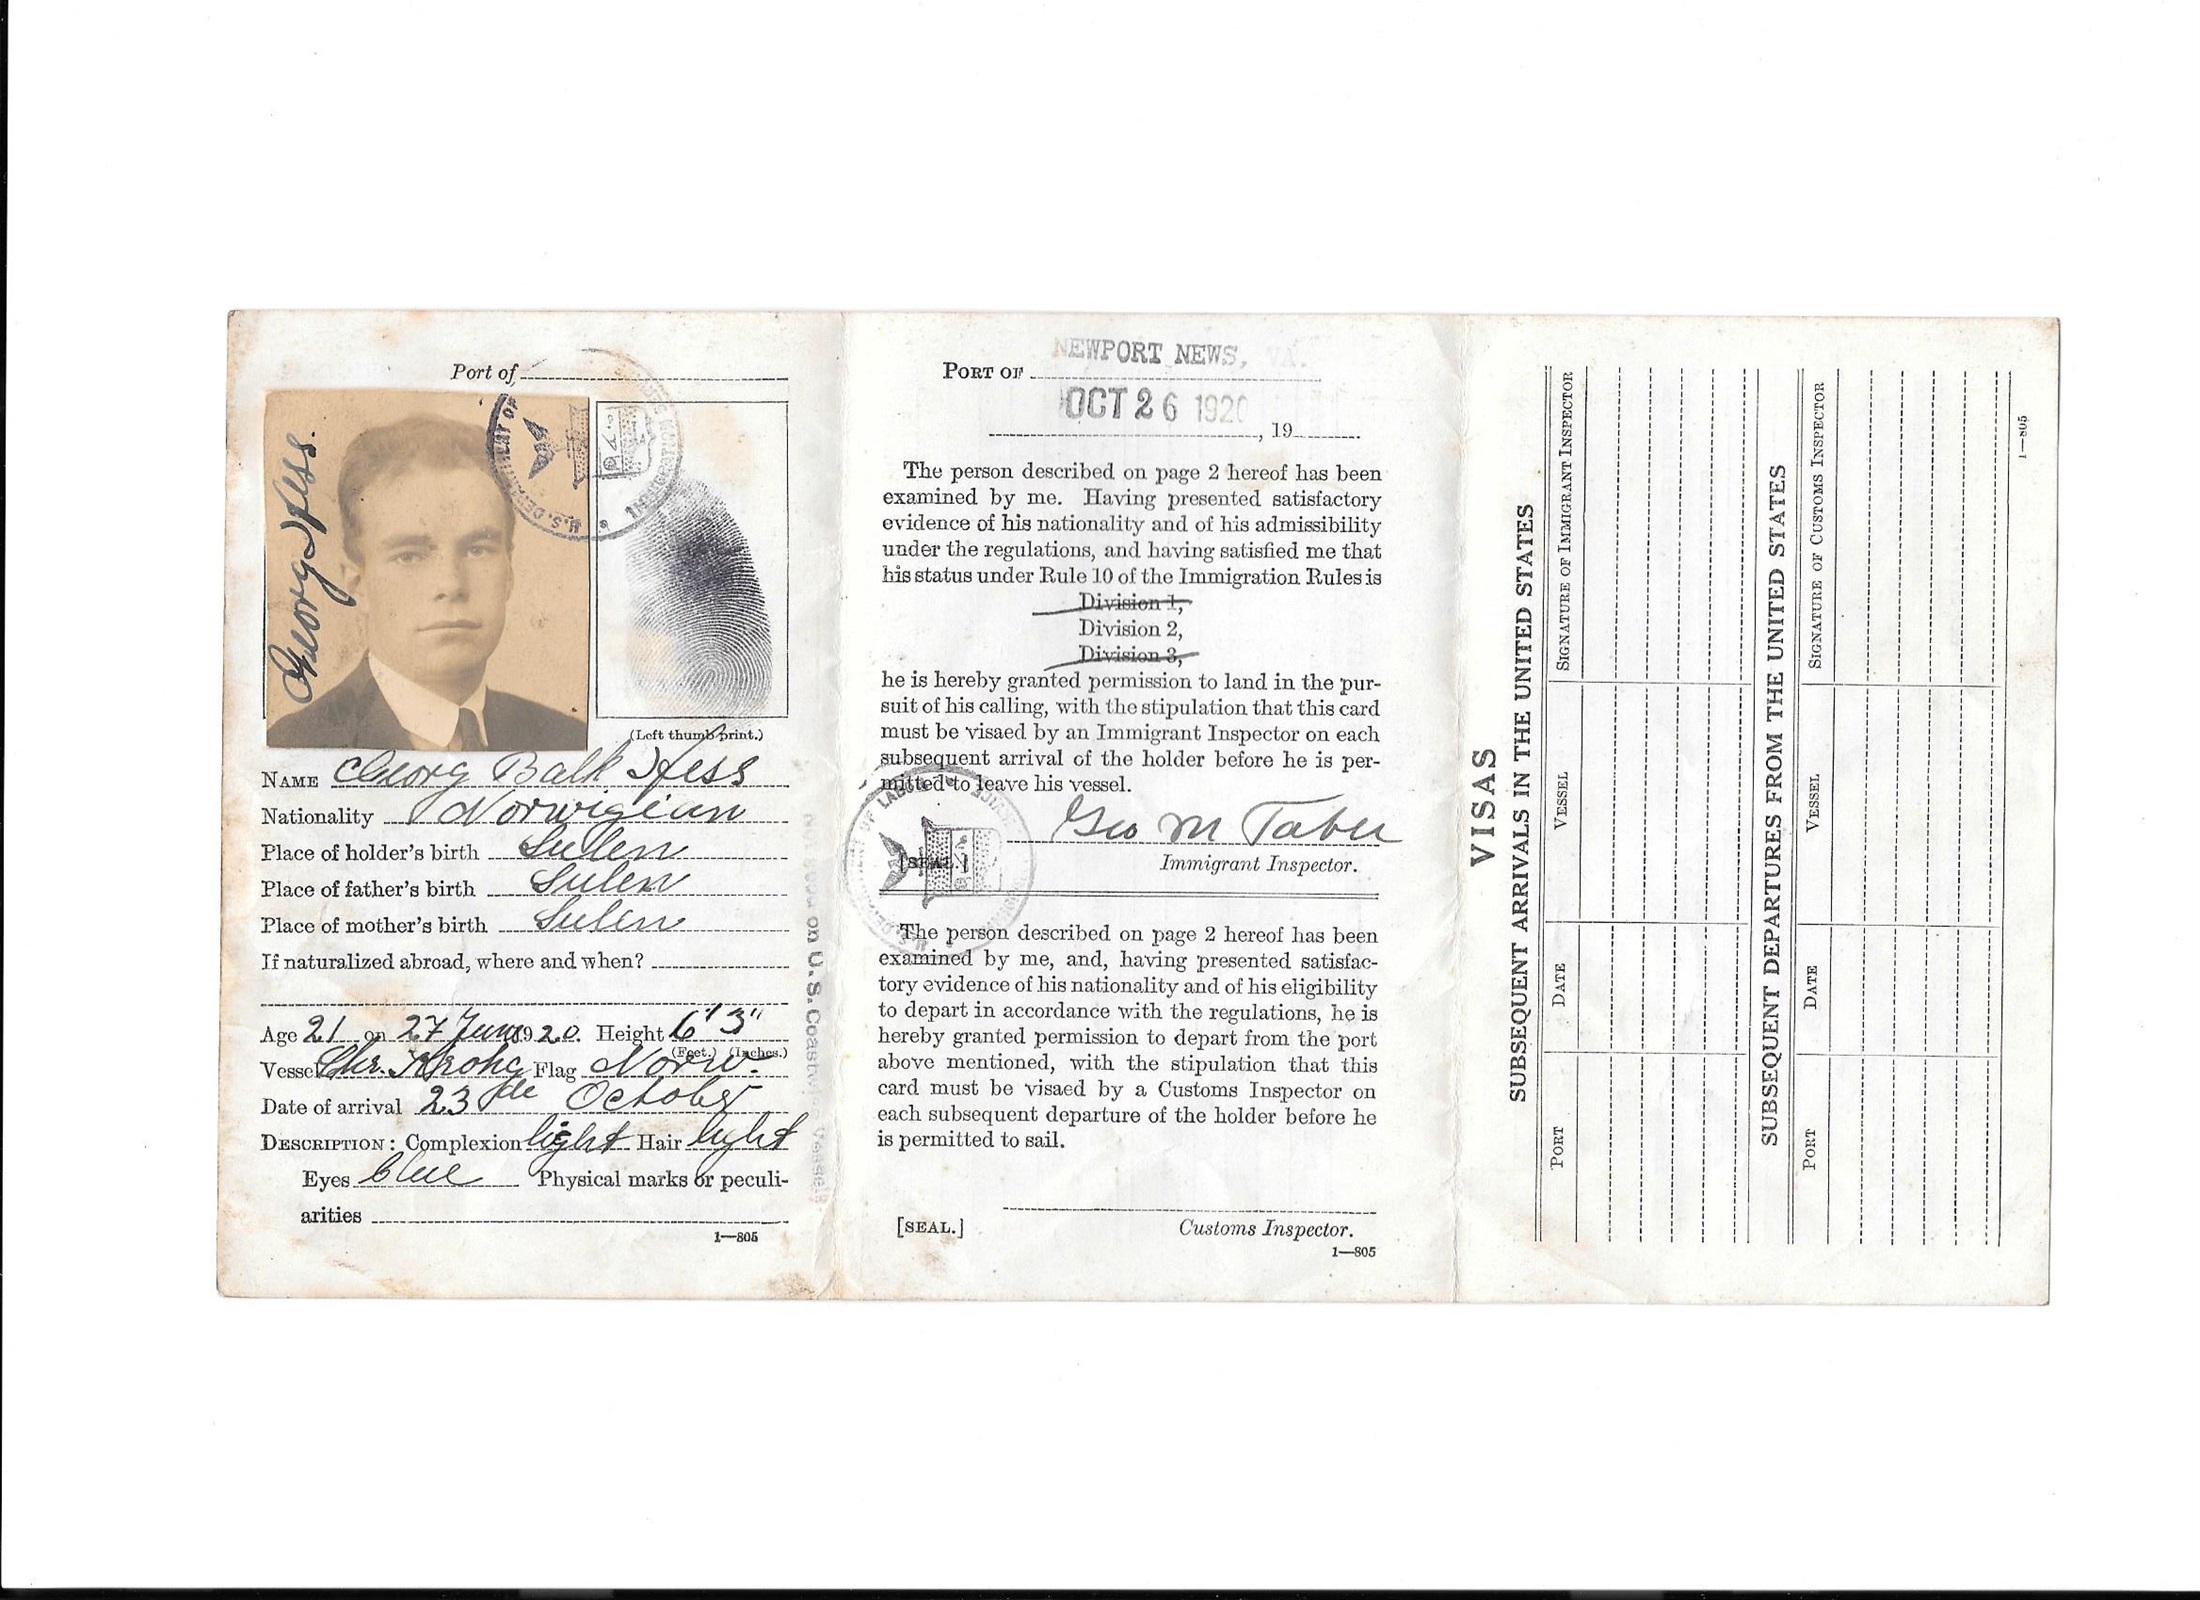 Port of
George Hess.
U.S. DEPARTMENT OF
IMMIGRATION
(Left thumb print.)
NAME Georg Balk Hess
Nationality Norwigian
Place of holder's birth Sulen
Place of father's birth Sulen
Place of mother's birth Sulen
If naturalized abroad, where and when?
Age 21 on 27 June 1920. Height 6' 3"
(Feet.) (Inches.)
Vessel Chr. Krohg Flag Norw.
Date of arrival 23 de October
DESCRIPTION: Complexion light Hair light
Eyes blue Physical marks or peculi-
arities
1—805
on U.S. Coastwise Vessels
NEWPORT NEWS, VA.
PORT OF
OCT 26 1920
, 19
The person described on page 2 hereof has been
examined by me. Having presented satisfactory
evidence of his nationality and of his admissibility
under the regulations, and having satisfied me that
his status under Rule 10 of the Immigration Rules is
Division 1,
Division 2,
Division 3,
he is hereby granted permission to land in the pur-
suit of his calling, with the stipulation that this card
must be visaed by an Immigrant Inspector on each
subsequent arrival of the holder before he is per-
mitted to leave his vessel.
Geo M Taber
[SEAL.] Immigrant Inspector.
The person described on page 2 hereof has been
examined by me, and, having presented satisfac-
tory evidence of his nationality and of his eligibility
to depart in accordance with the regulations, he is
hereby granted permission to depart from the port
above mentioned, with the stipulation that this
card must be visaed by a Customs Inspector on
each subsequent departure of the holder before he
is permitted to sail.
[SEAL.] Customs Inspector.
1—805
VISAS
SUBSEQUENT ARRIVALS IN THE UNITED STATES
PORT DATE VESSEL SIGNATURE OF IMMIGRANT INSPECTOR
SUBSEQUENT DEPARTURES FROM THE UNITED STATES
PORT DATE VESSEL SIGNATURE OF CUSTOMS INSPECTOR
1—805